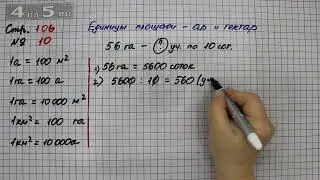 4 по 5 math
Стр. 106
№ 10
1а = 100 м²
1га = 100 а
1га = 10 000 м²
1км² = 100 га
1км² = 10 000а
Единицы площади – ар и гектар
56 га – ? уч. по 10 сот.
1) 56 га = 5600 соток
2) 5600 : 10 = 560 (уч